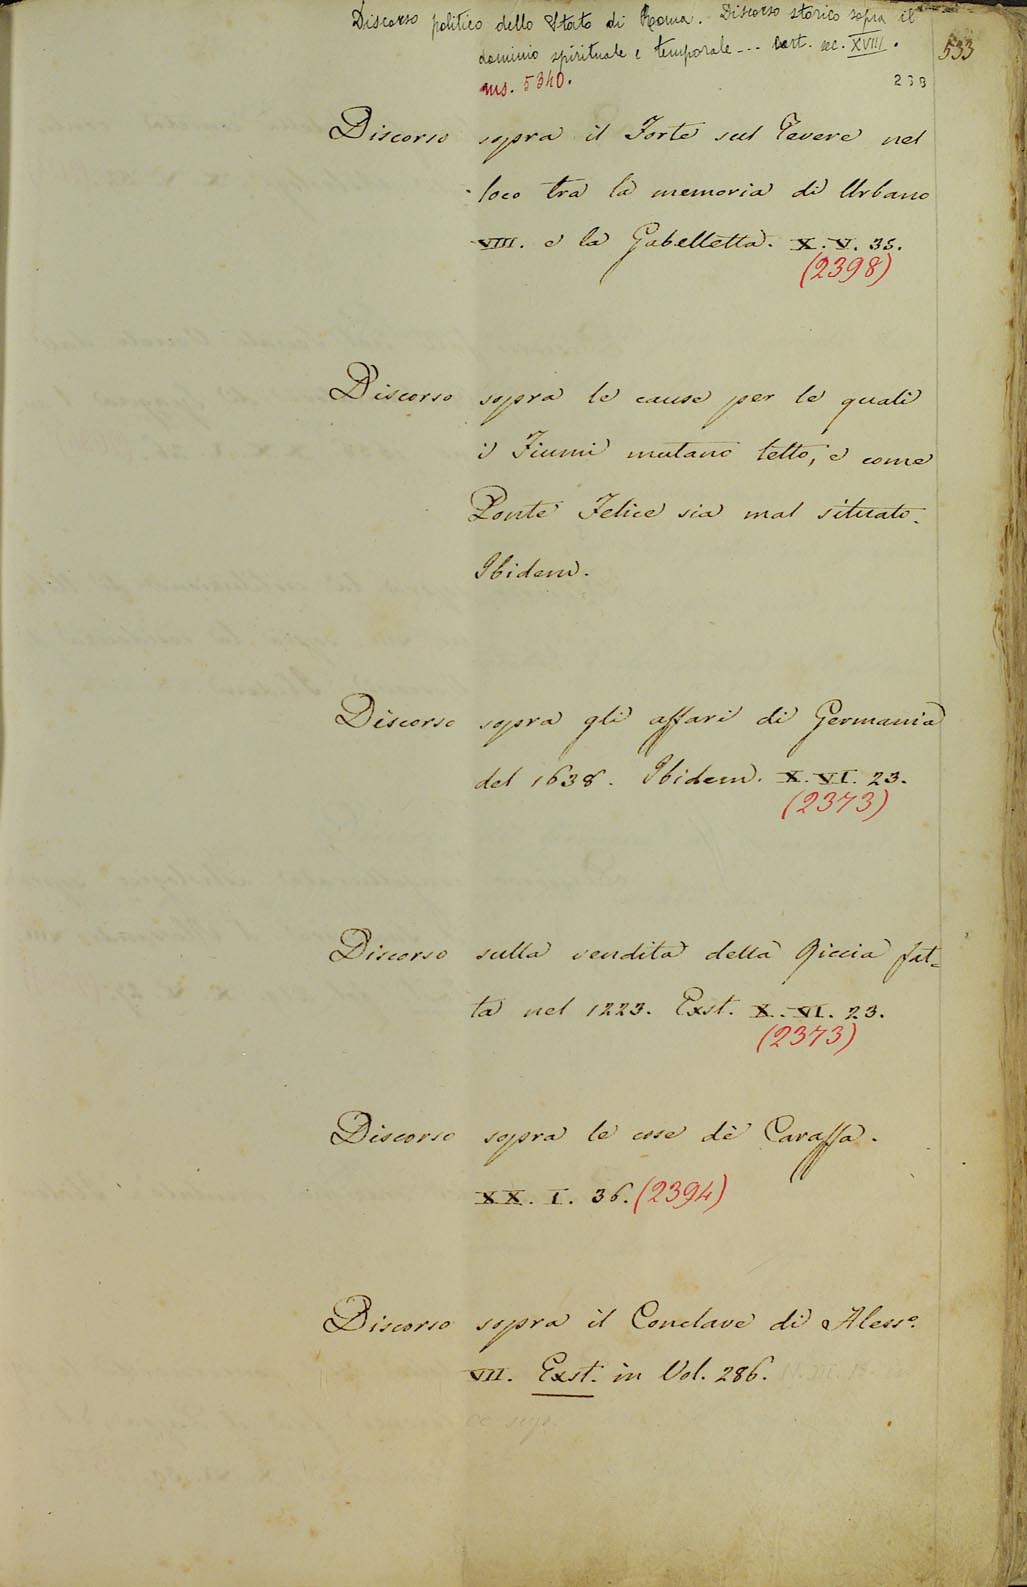 Discorso politico dello Stato di Roma. Discorso storico sopra il
dominio spirituale e temporale --- cart. sec. XVIII.
533
ms. 5340.
238
Discorso sopra il Forte sul Tevere nel
loco tra la memoria di Urbano
VIII. e la Gabelletta. X. V. 35.
(2398)
Discorso sopra le cause per le quali
i Fiumi mutano letto, e come
Ponte Felice sia mal situato.
Ibidem.
Discorso sopra gli affari di Germania
del 1638. Ibidem. X. VI. 23.
(2373)
Discorso sulla vendita della Riccia fat=
ta nel 1223. Exst. X. VI. 23.
(2373)
Discorso sopra le cose dè Caraffa.
XX. I. 36. (2394)
Discorso sopra il Conclave di Aless.º
VII. Exst. in Vol. 286.